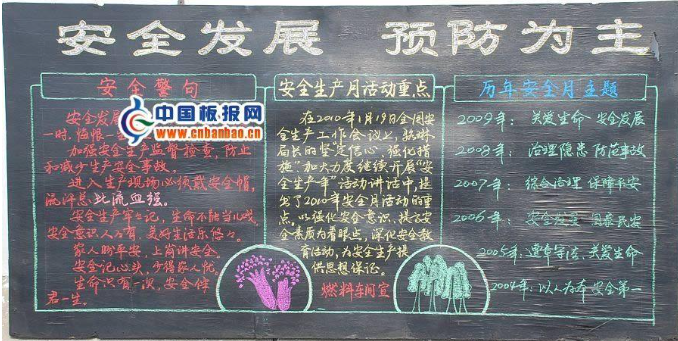 安全发展 预防为主
安全警句
安全发展
一时,
加强安全生产监督检查,防止
和减少生产安全事故。
进入生产现场必须戴安全帽,
流汗总比流血强。
安全生产牢牢记,生命不能当儿戏
安全意识人人有,美好生活乐悠悠。
家人盼平安,上岗讲安全。
安全记心头,少得家人忧。
生命只有一次,安全伴
君一生。
中国板报网
www.cnbanbao.cn
安全生产月活动重点
在2010年1月19日全国安
全生产工作会议上,
局长的坚定信心 强化措
施"加大力度继续开展"安
全生产年"活动讲话中,提
出了2010年安全月活动的重
点,以强化安全意识,提高安
全素质为着眼点,深化安全教
育活动,为安全生产提
供思想保证。
燃料车间宣
历年安全月主题
2009年:关爱生命 安全发展
2008年:治理隐患 防范事故
2007年:综合治理 保障平安
2006年:安全发展 国泰民安
2005年:遵章守法,关爱生命
2004年:以人为本 安全第一